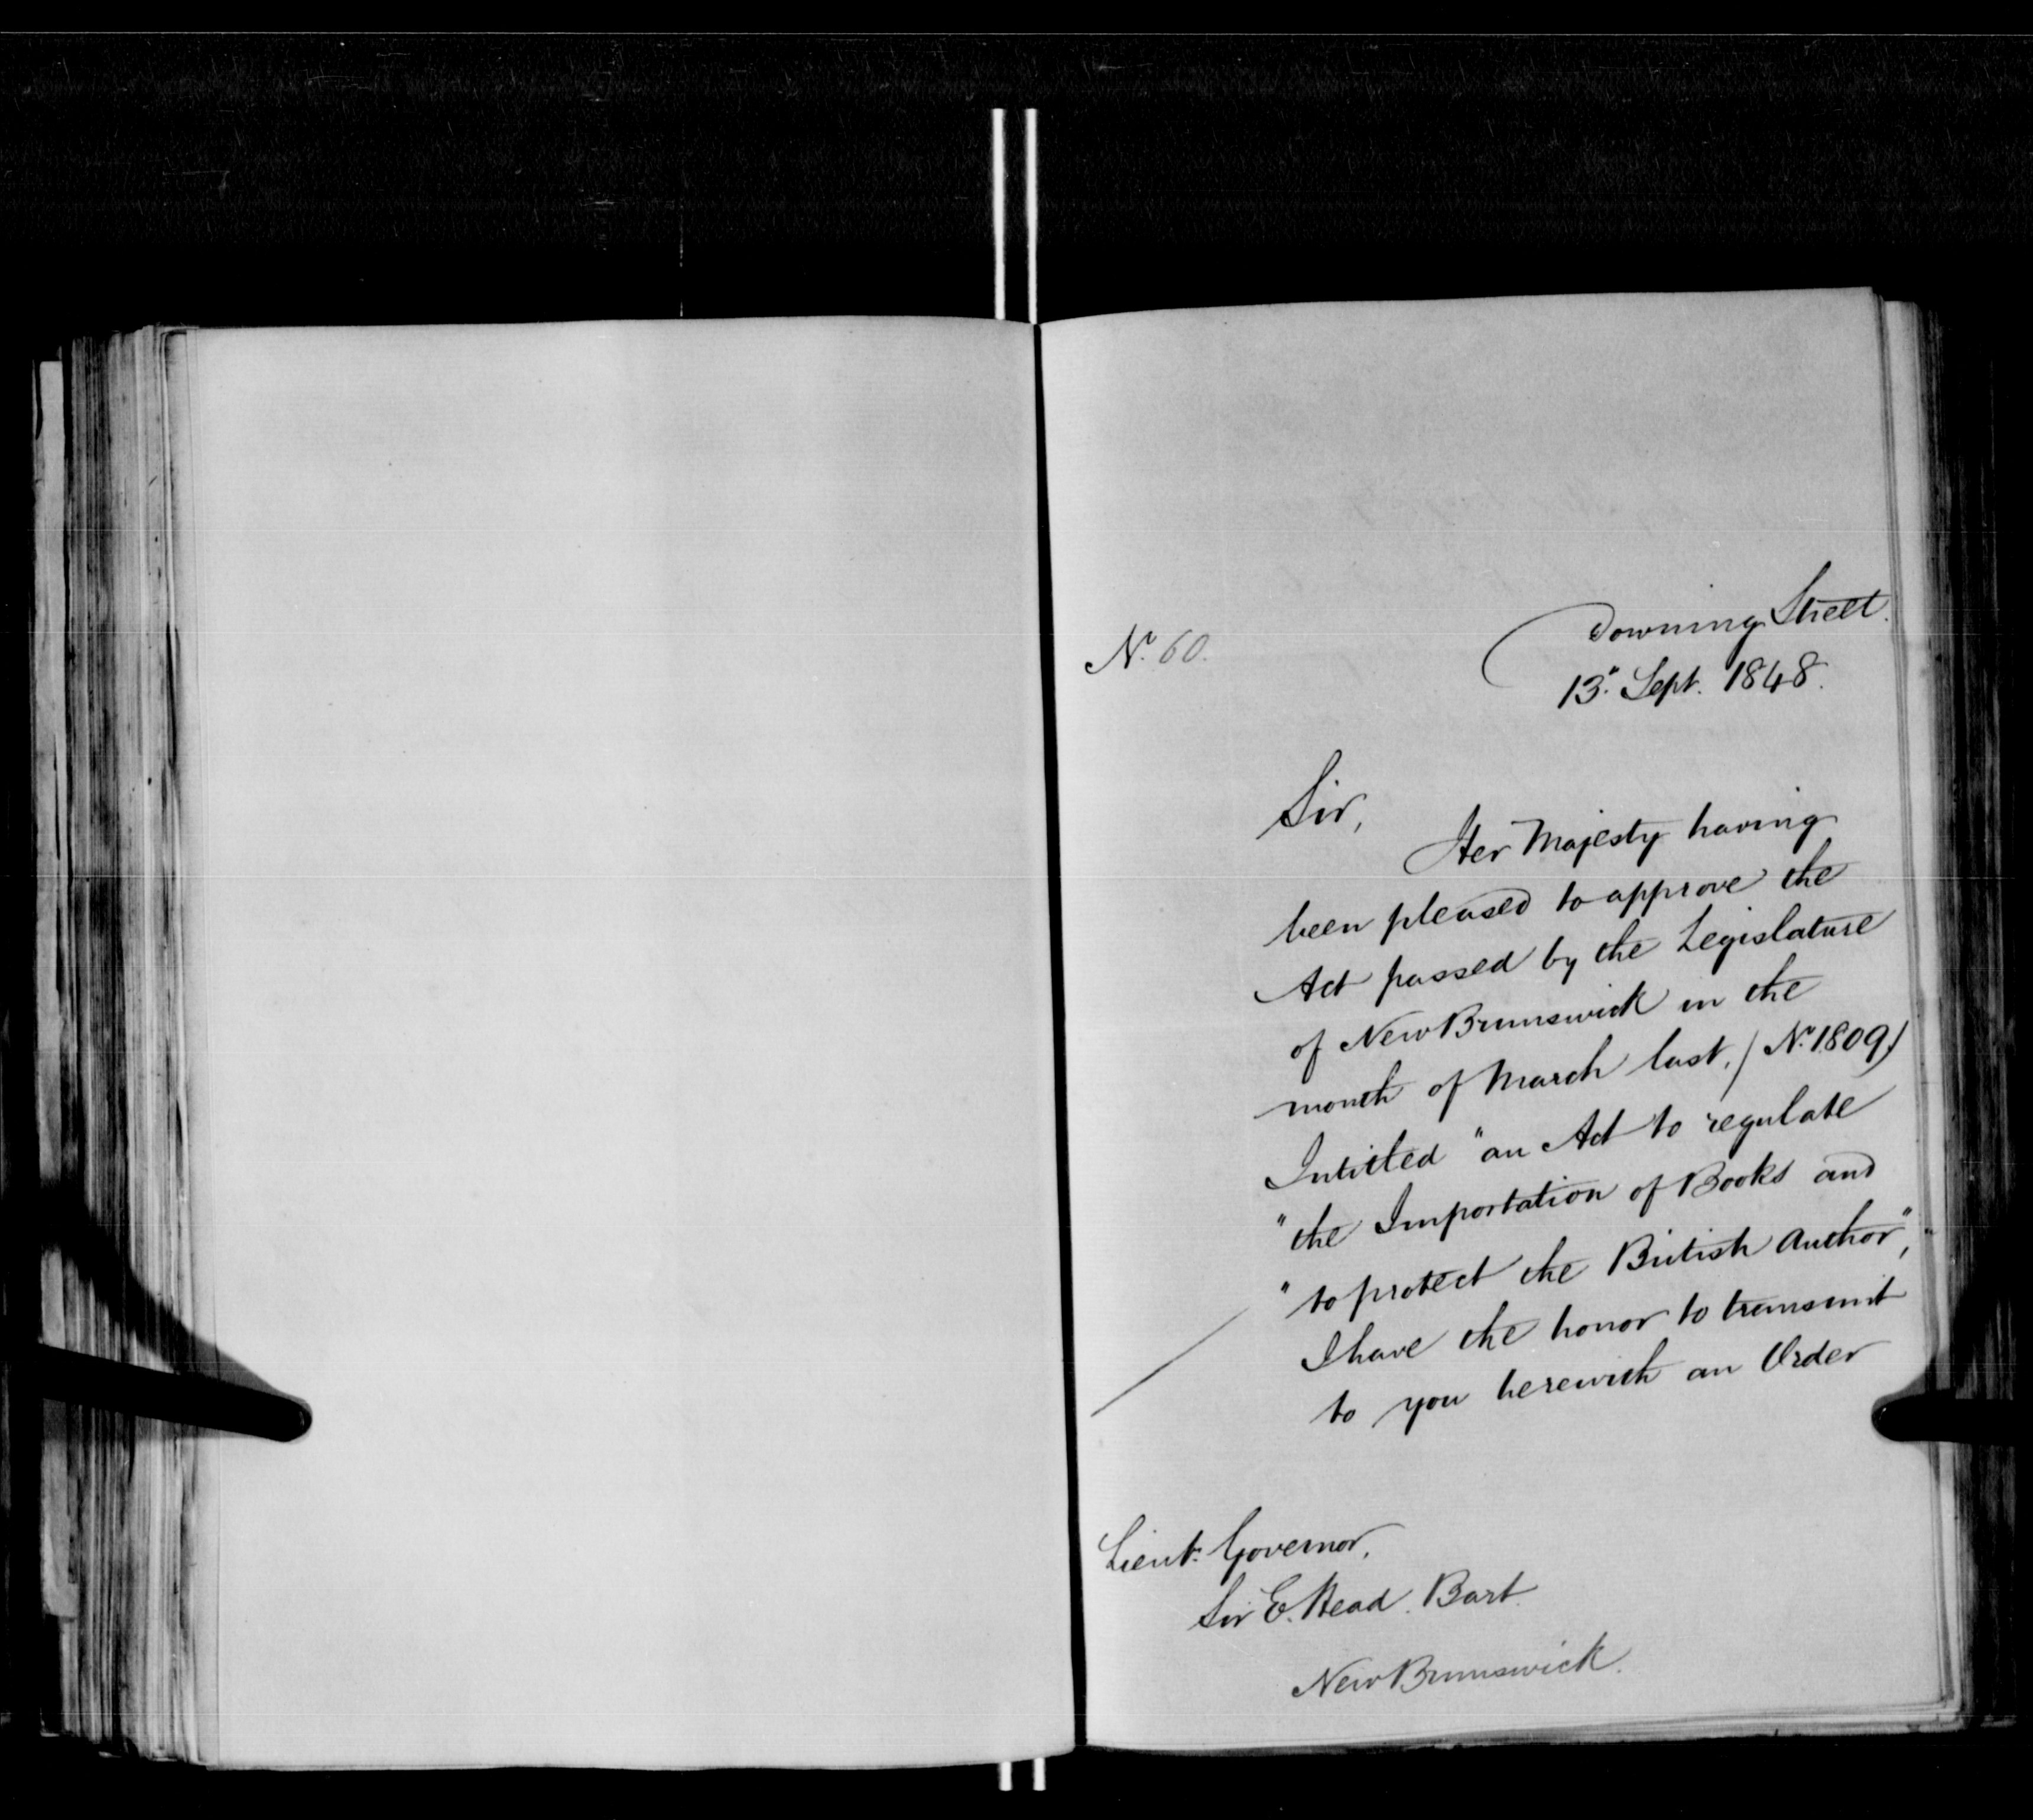 Nº. 60.
Downing Street.
13". Sept. 1848.
Sir,
Her Majesty having
been pleased to approve the
Act passed by the Legislature
of New Brunswick in the
month of March last, (Nº. 1809)
Intitled "an Act to regulate
"the Importation of Books and
"to protect the British Author",
I have the honor to transmit
to you herewith an Order
Lieut. Governor,
Sir E. Head. Bart.
New Brunswick.